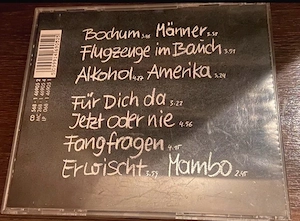 Bochum 3:50 Männer 3:59
Flugzeuge im Bauch 3:54
Alkohol 4:27 Amerika 3:24
Für Dich da 3:22
Jetzt oder nie 4:56
Fangfragen 4:15
Erwischt 3:33 Mambo 2:45